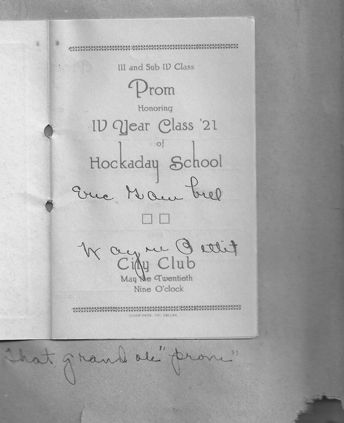 III and Sub IV Class
Prom
Honoring
IV Year Class '21
of
Hockaday School
Eric Gambrell
Wayne Pettit
City Club
May the Twentieth
Nine O'clock
That grand ole "prom"